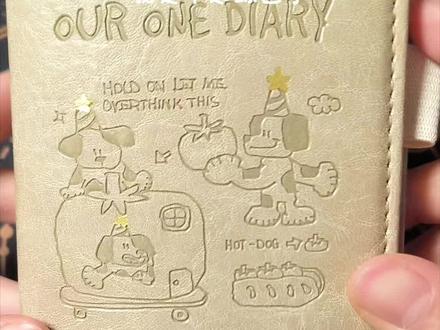 OUR ONE DIARY
HOLD ON LET ME
OVERTHINK THIS
HOT-DOG